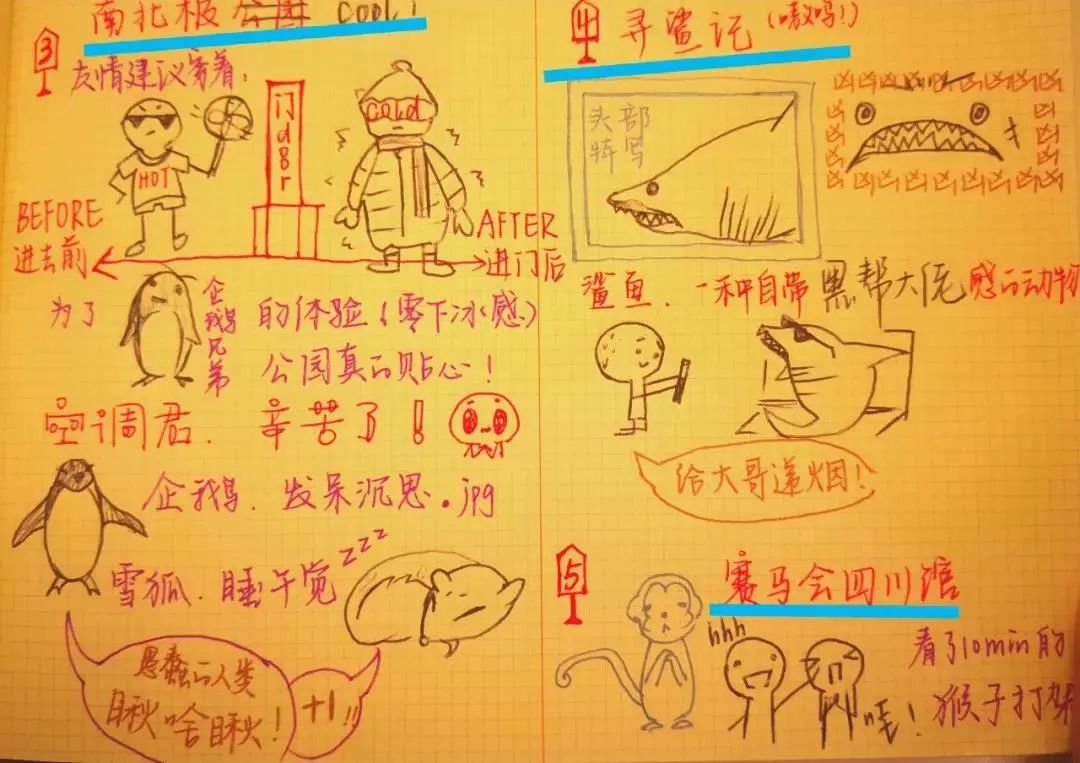 3
南北极公园 cool!
友情建议穿着,
HOT
门door
cold
BEFORE
进去前
AFTER
进门后
为了
企鹅兄弟
的体验(零下冰感)
公园真的贴心!
空调君.辛苦了!
企鹅.发呆沉思.jpg
雪狐.睡午觉
zzz
愚蠢的人类
瞅啥瞅!
+1!!
4
寻鲨记(嗷呜!)
头部
特写
凶凶凶凶凶凶凶凶
鲨鱼.一种自带黑帮大佬感的动物
给大哥递烟!
5
赛马会四川馆
hhh
看了10min的
猴子打架
哇!